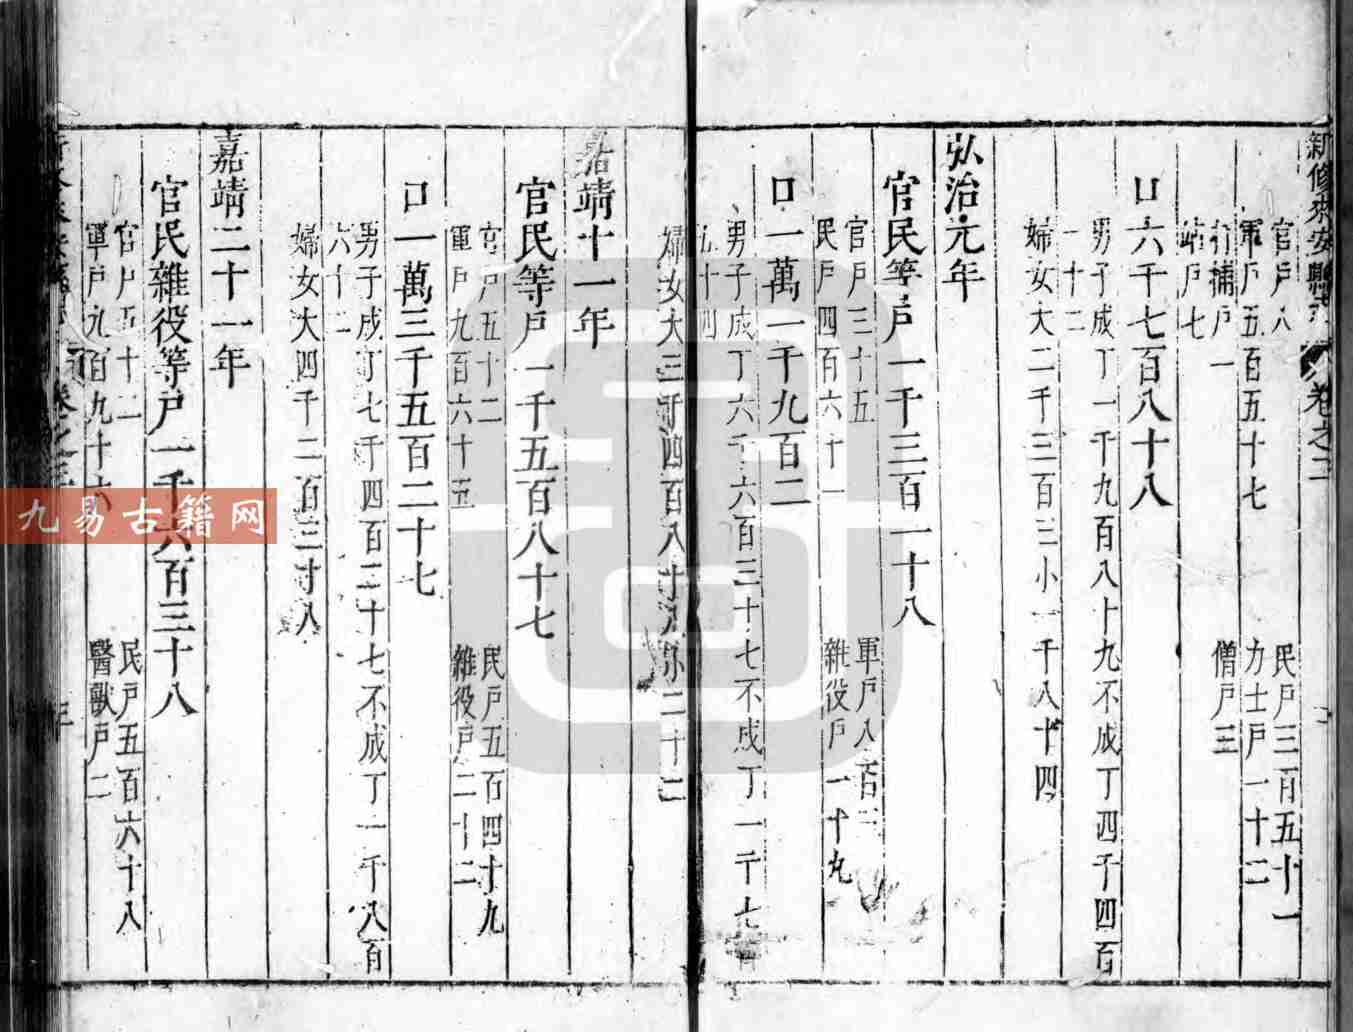 新修來安縣志 卷之二
官戶八
民戶三百五十一
軍戶五百五十七
力士戶一十二
打捕戶一
僧戶三
站戶七
口六千七百八十八
男子成丁一千九百八十九不成丁四千四百
一十二
婦女大二千三百三小一千八十四
弘治元年
官民等戶一千三百一十八
官戶三十五
軍戶八百三
民戶四百六十一
雜役戶一十九
口一萬一千九百二
男子成丁六千六百三十七不成丁一千七百
九十四
婦女大三千四百八十九小二十二
嘉靖十一年
官民等戶一千五百八十七
官戶五十二
民戶五百四十九
軍戶九百六十五
雜役戶二十二
口一萬三千五百二十七
男子成丁七千四百二十七不成丁一千八百
六十二
婦女大四千二百三十八
嘉靖二十一年
官民雜役等戶一千六百三十八
官戶五十二
民戶五百六十八
軍戶九百九十六
醫獸戶二
九易古籍网